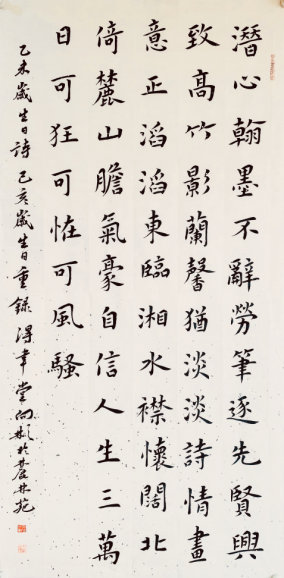 潛心翰墨不辭勞筆逐先賢興
致高竹影蘭馨猶淡淡詩情畫
意正滔滔東臨湘水襟懷闊北
倚麓山膽氣豪自信人生三萬
日可狂可恠可風騷
乙未歲生日詩己亥歲生日重錄 得韋 常向彬於麓林苑